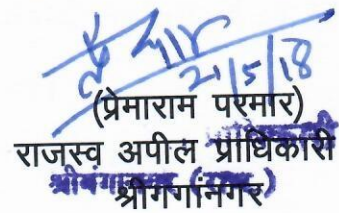 21/5/18
(प्रेमाराम परमार)
राजस्व अपील प्राधिकारी
श्रीगगांनगर